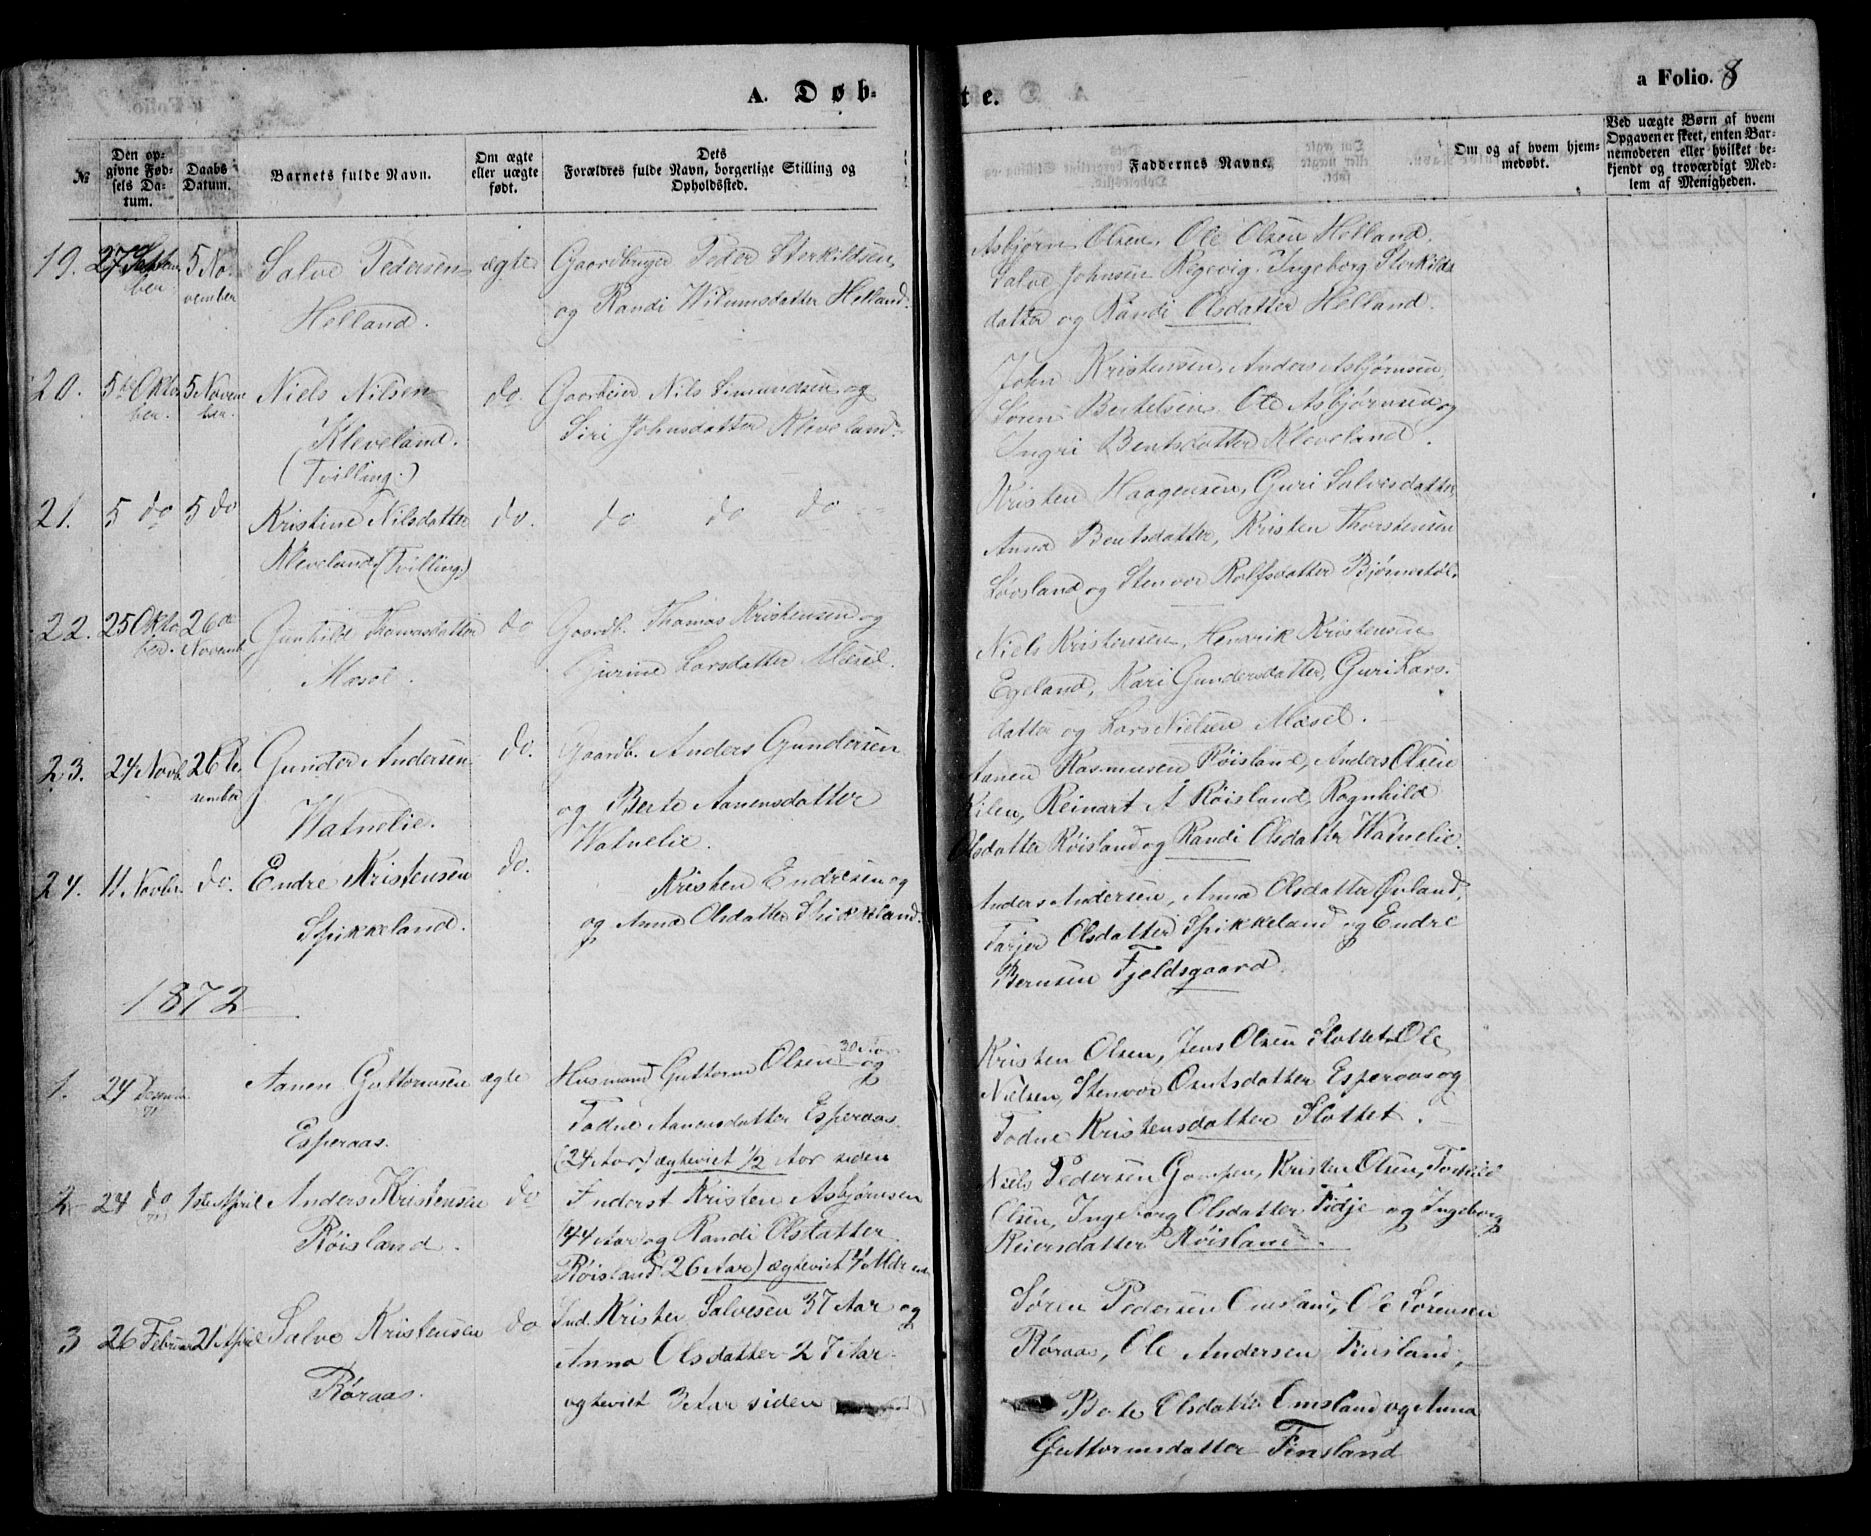 A. Døb-
te.
a Folio. 8
№
Den op-
givne Fød-
sels Da-
tum.
Daabs
Datum.
Barnets fulde Navn.
Om ægte
eller uægte
født.
Dets
Forældres fulde Navn, borgerlige Stilling og
Opholdssted.
Faddernes Navne.
Om og af hvem hjem-
medøbt.
Ved uægte Børn af hvem
Opgaven er skeet, enten Bar-
nemoderen eller hvilket be-
kjendt og troværdigt Med-
lem af Menigheden.
19. 27 5 No-
vember
Salve Pedersen ægte
Helland.
Gaardbruger Peder Sterkildsen
og Randi Wilumsdatter Helland.
Asbjørn Olsen, Ole Olsen Helland.
Salve Johnsen Regevig. Ingeborg Sterkilds
datter og Randi Olsdatter Helland.
20. 5te Okto
ber. 5 Novem
ber.
Niels Nilsen do.
Kleveland.
(Tvilling.)
Gaardeier Nils Simundsen og
Siri Johnsdatter Kleveland.
John Kristensen, Anders Asbjørnsen,
Søren Bertelsen, Ole Asbjørnsen og
Ingri Bentsdatter Kleveland.
21. 5 do 5 do
Kristine Nilsdatter do.
Kleveland (Tvilling.)
do do do
Kristen Haagensen, Guri Salvesdatter
Anna Bentsdatter, Kristen Thorstensen
Løvsland og Stenvor Rolfsdatter Bjørnestøl.
22. 25 Okto
ber. 26de
Novemb.
Gunhild Thomasdatter do
Mæsel.
Gaardb. Thomas Kristensen og
Gurine Larsdatter Mæsel.
Niels Kristensen, Henrik Kristensen
Egeland, Kari Gundersdatter, Guri Lars-
datter og Lars Nielsen Mæsel.
23. 24 Novb. 26 De
cember
Gunder Andersen do.
Watnelie.
Gaardb. Anders Gundersen
og Berte Aanensdatter
Watnelie.
Aanen Rasmusen Røisland, Anders Olsen
Kilen, Reinart A Røisland, Rognhild
Olsdatter Røisland og Randi Olsdatter Watnelie.
24. 11. Novbr. do.
Endre Kristensen do.
Spikkeland.
Kristen Endresen og
og Anna Olsdatter Spikkeland.
Anders Andersen, Anna Olsdatter Øvland,
Tarjer Olsdatter Spikkeland og Endre
Bernsen Fjeldsgaard.
1872
1. 24 Decemb.
71
Aanen Guttormsen ægte
Esperaas.
Husmand Guttorm Olsen 30 Aar og
Todne Aanensdatter Esperaas
(24 Aar) ægteviet 1/2 Aar siden
Kristen Olsen, Jens Olsen Slottet, Ole
Nielsen, Stenvor Omtsdatter Esperaas og
Todne Kristensdatter Slottet.
2 24 do
(71) 1ste April
Anders Kristensen do
Røisland.
Inderst Kristen Asbjørnsen
(44 Aar og Randi Olsdatter
Røisland 26 Aar) ægteviet 4 Mdr
Niels Pedersen Gompen, Kristen Olsen, Torkild
Olsen, Ingeborg Olsdatter Tidje og Ingeborg
Reiersdatter Røisland.
3 26 Februar 21 April
Salve Kristensen do
Røraas.
Ind. Kristen Salvesen 37 Aar og
Anna Olsdatter 27 Aar
ægteviet 3 Aar siden
Søren Pedersen Omsland, Ole Sørensen
Røraas, Ole Andersen Finsland,
Berte Olsdatter Omsland og Anna
Guttormsdatter Finsland